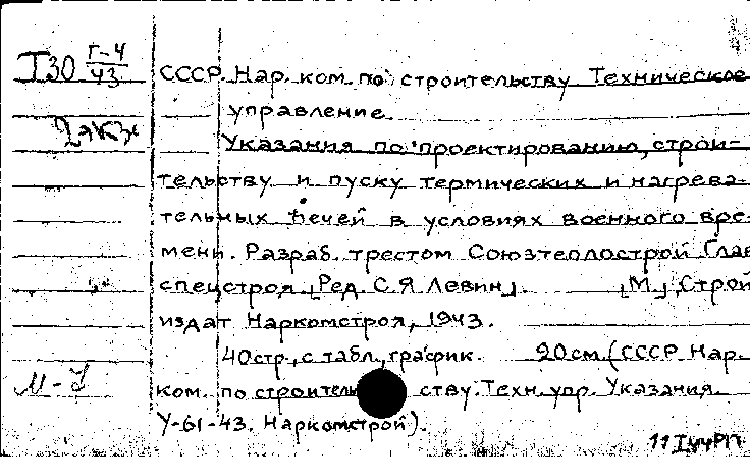 I30 Г-4/43
СССР. Нар. ком. по строительству Техническое
управление.
2 экз
Указания по проектированию, строи-
тельству и пуску термических и нагрева-
тельных печей в условиях военного вре-
мени. Разраб. трестом Союзтеплострой Глав
спецстроя [Ред. С.Я Левин]. [М.], Строй
издат Наркомстроя, 1943.
40стр., с табл., график. 20см. (СССР Нар.
ком. по строительству. Техн. упр. Указания.
У-61-43. Наркомстрой).
11